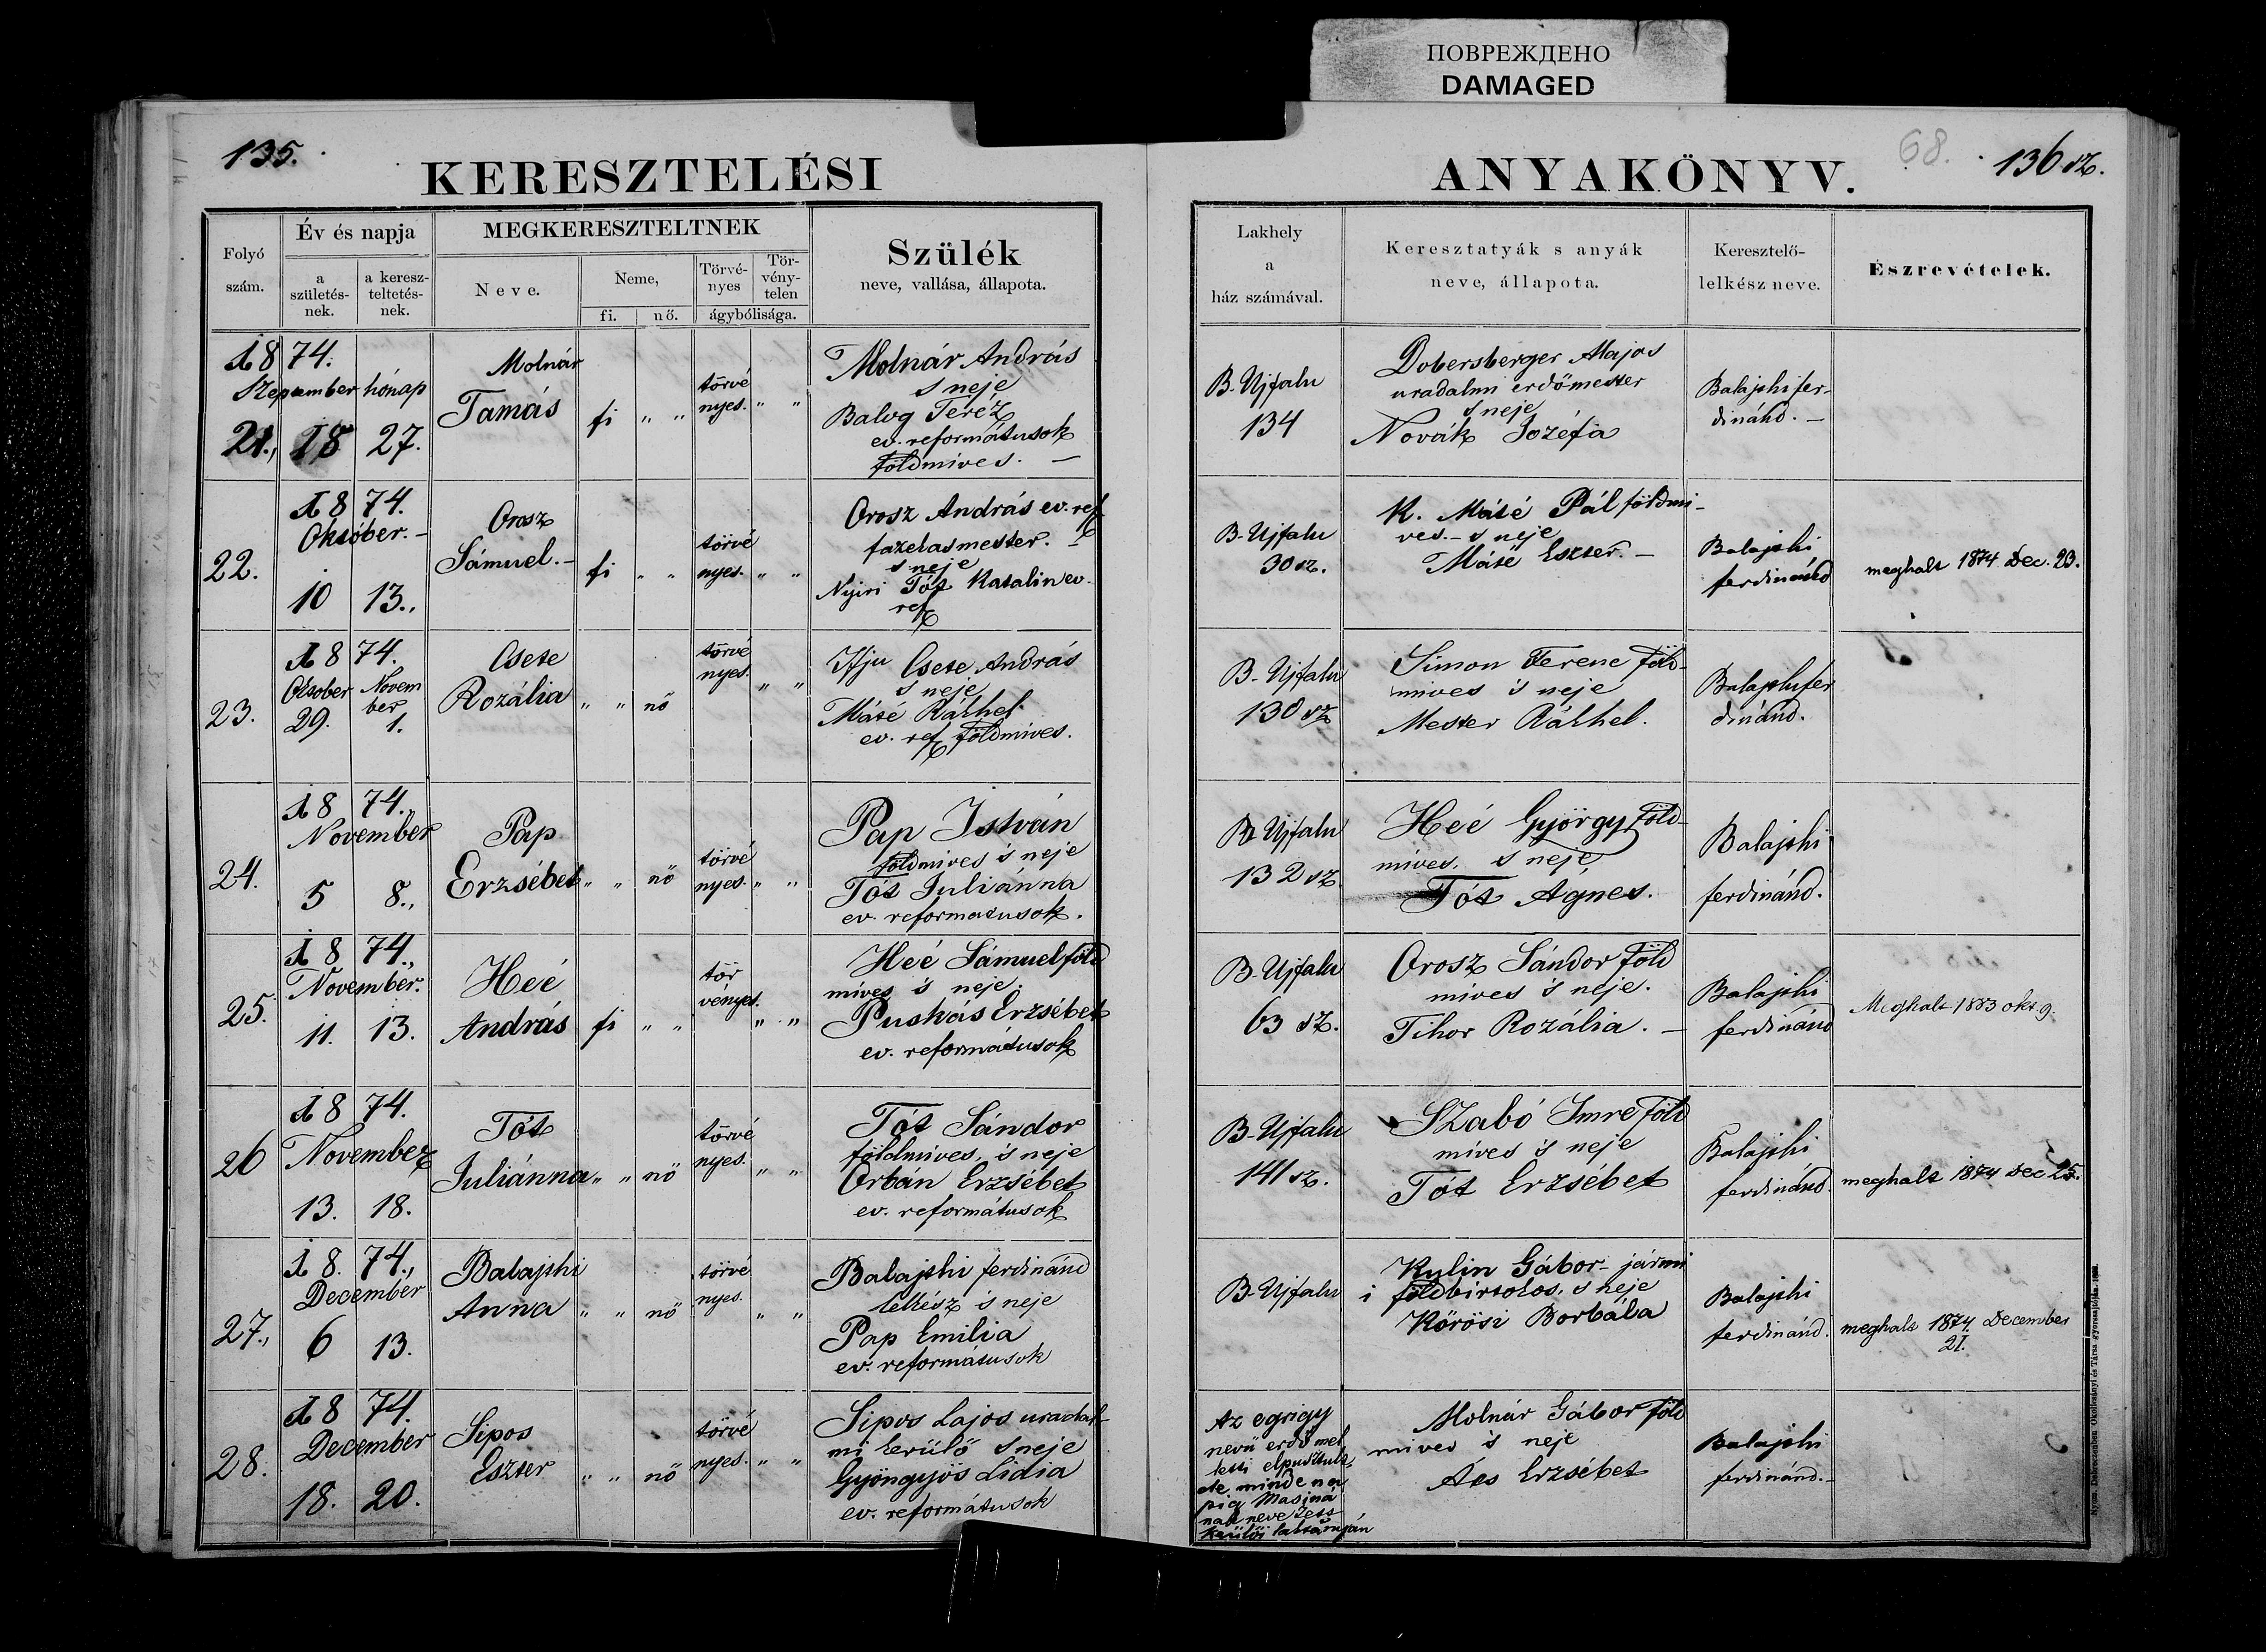 ПОВРЕЖДЕНО
DAMAGED
135.
KERESZTELÉSI
Folyó
szám.
Év és napja
a
születés-
nek.
a keresz-
teltetés-
nek.
MEGKERESZTELTNEK
Neve.
Neme,
fi.
nő.
Törvé-
nyes
Tör-
vény-
telen
ágybólisága.
Szülék
neve, vallása, állapota.
1874.
September hónap
21., 18 27.
Molnár
Tamás
fi " "
törvé
nyes. " "
Molnár András
s neje
Balog Teréz
ev. reformátusok
földmives. —
1874.
Október. —
22. 10 13.,
Orosz
Sámuel. —
fi " "
törvé
nyes. " "
Orosz András ev. ref
fazekasmester. —
s neje
Nyiri Tót Katalin ev.
ref
1874.
Oktober Novem
ber
23. 29. 1.
Csete
Rozália
" " nő
törvé
nyes. " "
Ifju Csete András
s neje
Máté Ráhel
ev. ref földmives.
1874.,
November
24. 5 8.,
Pap
Erzsébet
" " nő
törvé
nyes. " "
Pap István
földmives s neje
Tót Juliánna
ev. reformatusok.
1874.,
November.
25. 11. 13.
Heé
András
fi " "
tör
vényes. " "
Heé Sámuel föld
mives s neje.
Puskás Erzsébet
ev. reformátusok
1874.
November
26 13. 18.
Tót
Juliánna
" " nő
törvé
nyes. " "
Tót Sándor
földmives, s neje
Orbán Erzsébet
ev. reformátusok
1874.,
December
27., 6 13.
Balajthi
Anna
" " nő
törvé
nyes. " "
Balajthi ferdinánd
lelkész s neje
Pap Emilia
ev. reformátusok
1874.
December
28. 18. 20.
Sipos
Eszter
" " nő
törvé
nyes. " "
Sipos Lajos uradal-
mi kerülő s neje
Gyöngyös Lidia
ev. reformátusok
68. 136 sz.
ANYAKÖNYV.
Lakhely
a
ház számával.
Keresztatyák s anyák
neve, állapota.
Keresztelő-
lelkész neve.
Észrevételek.
B. Ujfalu
134
Dobersberger Alajos
uradalmi erdőmester
s neje
Novák Jozéfa
Balajthi fer-
dinánd. —
B-Ujfalu
30 sz.
K. Máté Pál földmi-
ves. — s neje
Máté Eszter. —
Balajthi
ferdinánd
meghalt 1874 Dec. 23.
B-Ujfalu
130 sz
Simon Ferenc föld-
mives s neje
Mester Ráhel.
Balajthi fer
dinánd.
B Ujfalu
132 sz
Heé György föld-
mives. s neje
Tót Agnes.
Balajthi
ferdinánd.
B-Ujfalu
63 sz.
Orosz Sándor föld
mives s neje.
Tihor Rozália. —
Balajthi
ferdinánd
Meghalt 1883 okt. 9.
B-Ujfalu
141 sz.
Szabó Imre föld
mives s neje
Tót Erzsébet
Balajthi
ferdinánd.
meghalt 1874 Dec 25.
B-Ujfalu
Kulin Gábor - jármi
i földbirtokos, s neje
Körösi Borbála
Balajthi
ferdinánd.
meghalt 1874. December
21.
Az egrigy
nevü erdő mel
letti
minde
pig
nak
kerülői
Molnár Gábor föld
mives s neje
Ács Erzsébet
Balajthi
ferdinánd. —